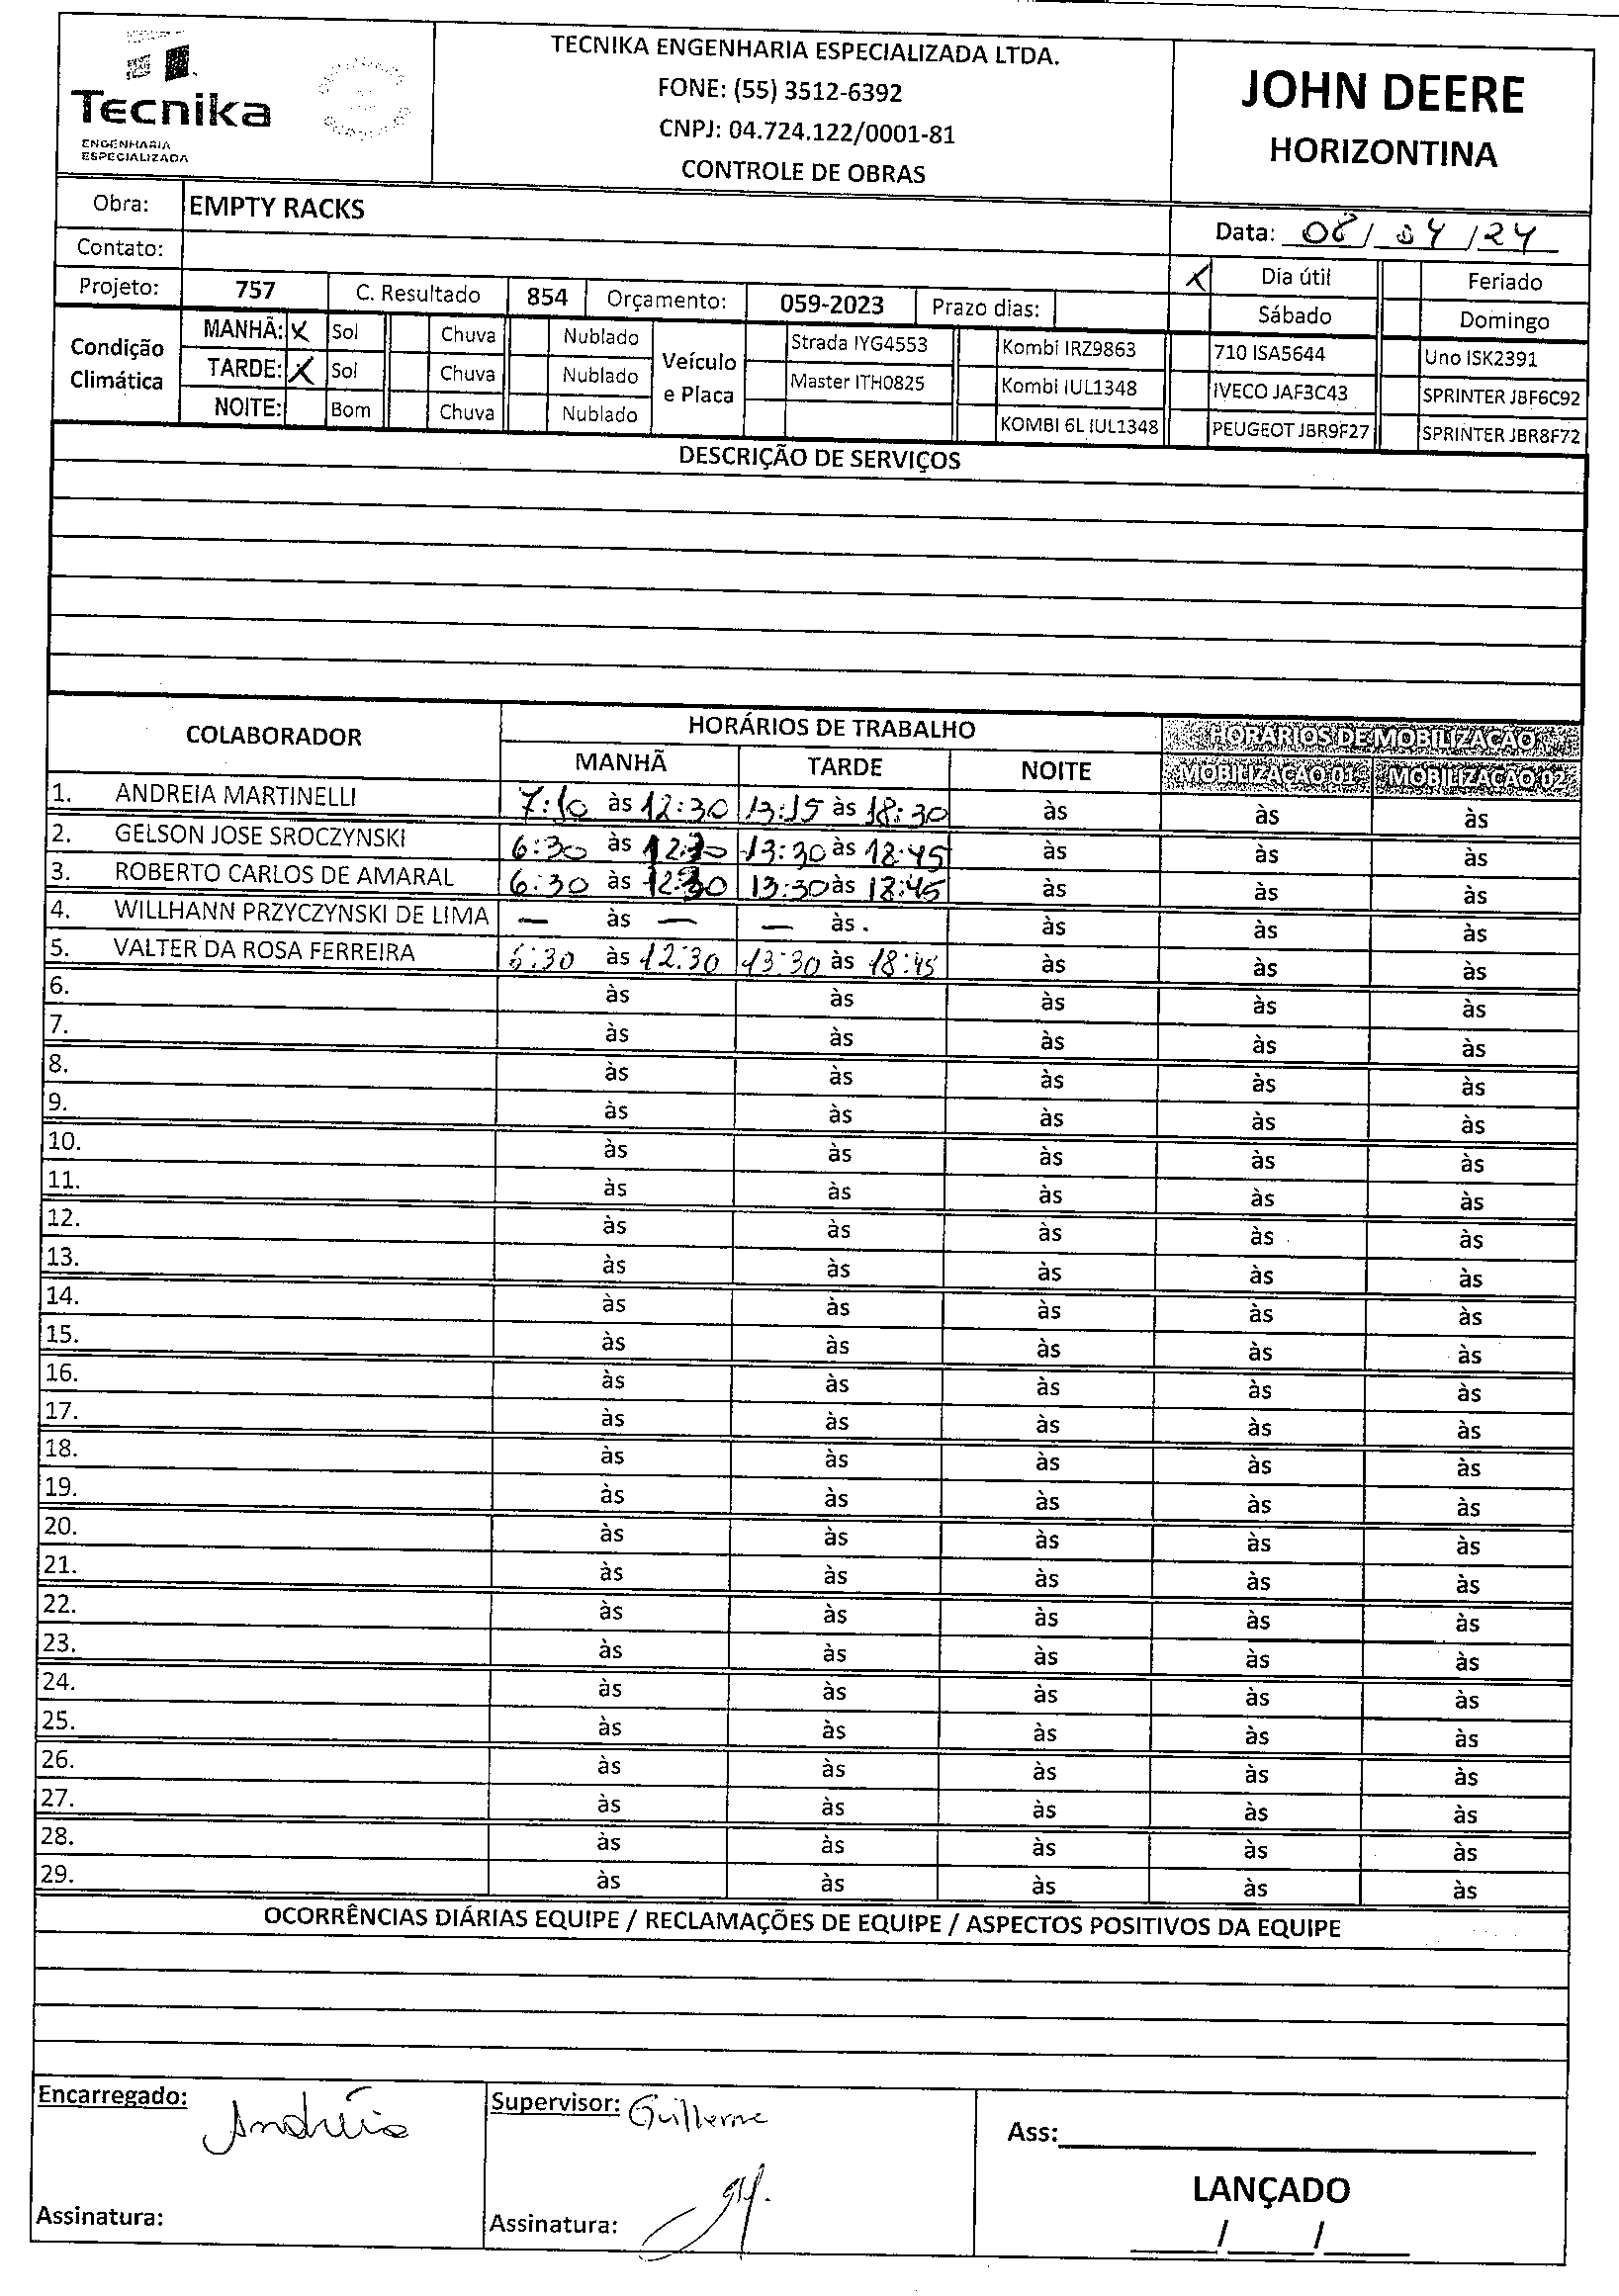 Tecnika
ENGENHARIA
ESPECIALIZADA
TECNIKA ENGENHARIA ESPECIALIZADA LTDA.
FONE: (55) 3512-6392
CNPJ: 04.724.122/0001-81
CONTROLE DE OBRAS
JOHN DEERE
HORIZONTINA
Obra: EMPTY RACKS
Data: 08/04/24
Contato:
X Dia útil Feriado
Projeto: 757 C. Resultado 854 Orçamento: 059-2023 Prazo dias: Sábado Domingo
Condição Climática
MANHÃ: X Sol Chuva Nublado
TARDE: X Sol Chuva Nublado
NOITE: Bom Chuva Nublado
Veículo e Placa
Strada IYG4553 Kombi IRZ9863 710 ISA5644 Uno ISK2391
Master ITH0825 Kombi IUL1348 IVECO JAF3C43 SPRINTER JBF6C92
KOMBI 6L IUL1348 PEUGEOT JBR9F27 SPRINTER JBR8F72
DESCRIÇÃO DE SERVIÇOS
COLABORADOR HORÁRIOS DE TRABALHO HORÁRIOS DE MOBILIZAÇÃO
MANHÃ TARDE NOITE MOBILIZAÇAO 01 MOBILIZAÇAO 02
1. ANDREIA MARTINELLI 7:10 às 12:30 13:15 às 18:30 às às às
2. GELSON JOSE SROCZYNSKI 6:30 às 12:30 13:30 às 18:45 às às às
3. ROBERTO CARLOS DE AMARAL 6:30 às 12:30 13:30 às 18:45 às às às
4. WILLHANN PRZYCZYNSKI DE LIMA — às — — às. às às às
5. VALTER DA ROSA FERREIRA 6:30 às 12:30 13:30 às 18:45 às às às
6. às às às às às
7. às às às às às
8. às às às às às
9. às às às às às
10. às às às às às
11. às às às às às
12. às às às às às
13. às às às às às
14. às às às às às
15. às às às às às
16. às às às às às
17. às às às às às
18. às às às às às
19. às às às às às
20. às às às às às
21. às às às às às
22. às às às às às
23. às às às às às
24. às às às às às
25. às às às às às
26. às às às às às
27. às às às às às
28. às às às às às
29. às às às às às
OCORRÊNCIAS DIÁRIAS EQUIPE / RECLAMAÇÕES DE EQUIPE / ASPECTOS POSITIVOS DA EQUIPE
Encarregado: Andréia
Supervisor: Guilherme
Ass:
LANÇADO
Assinatura:
Assinatura:
/ /